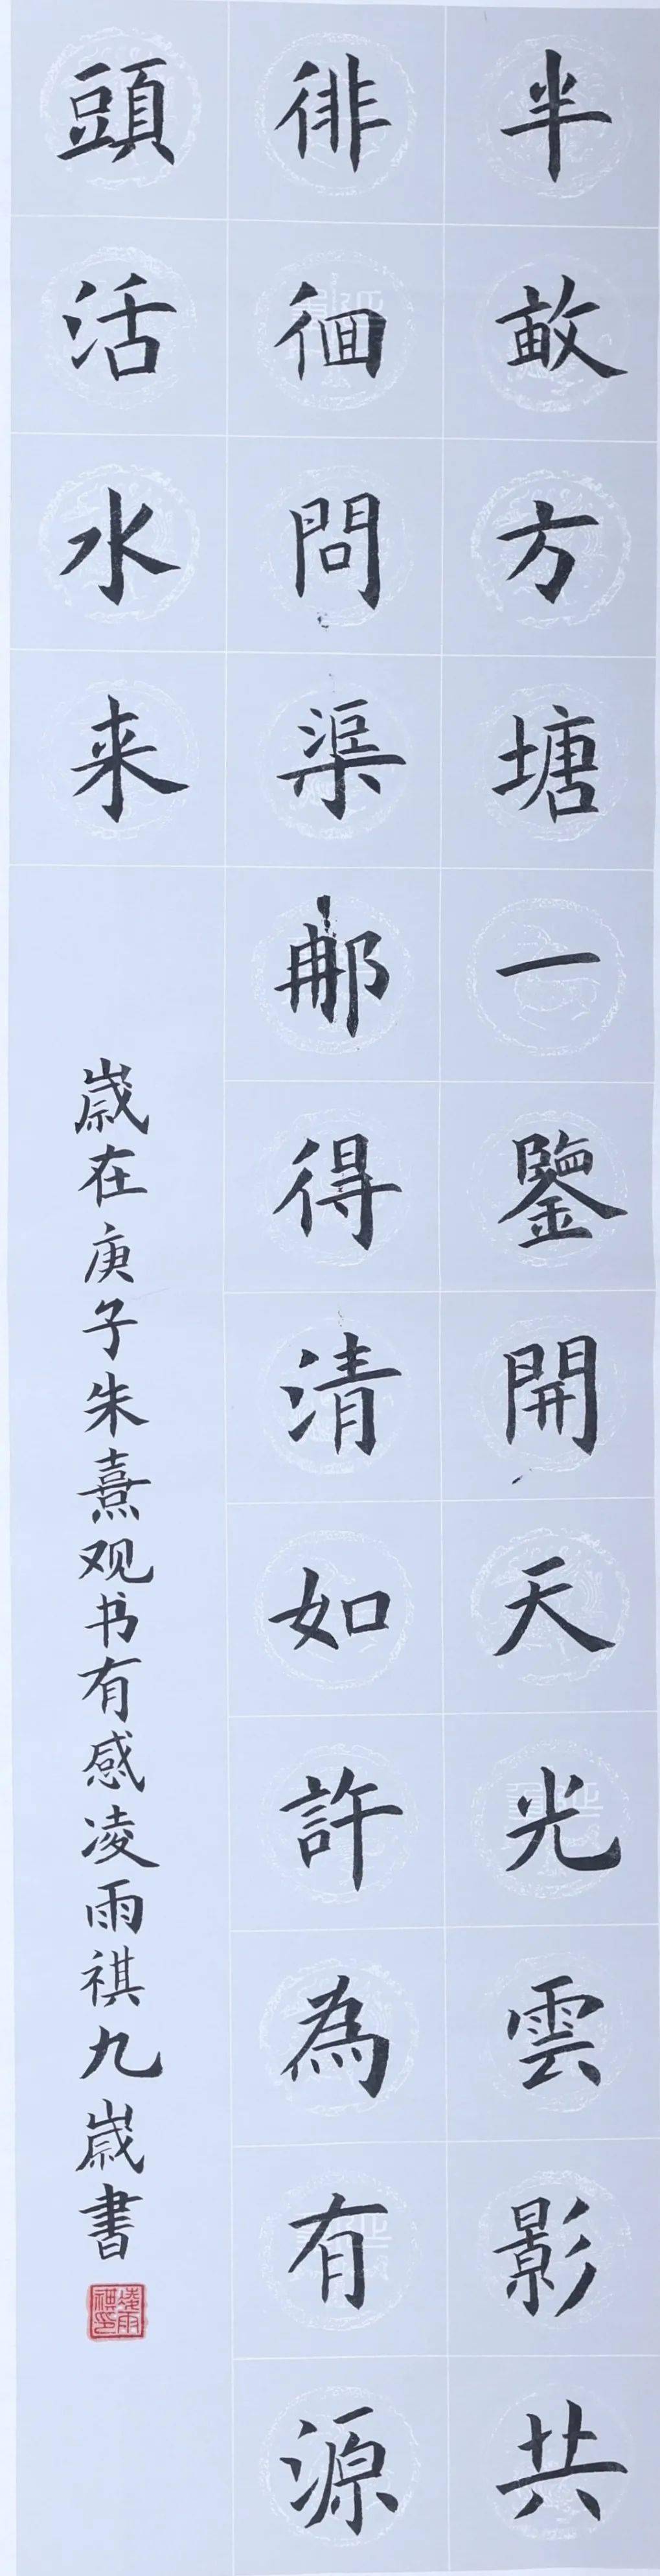 半畝方塘一鑒開天光雲影共
徘徊問渠那得清如許為有源
頭活水来
歲在庚子朱熹观书有感凌雨祺九歲書
凌雨祺印